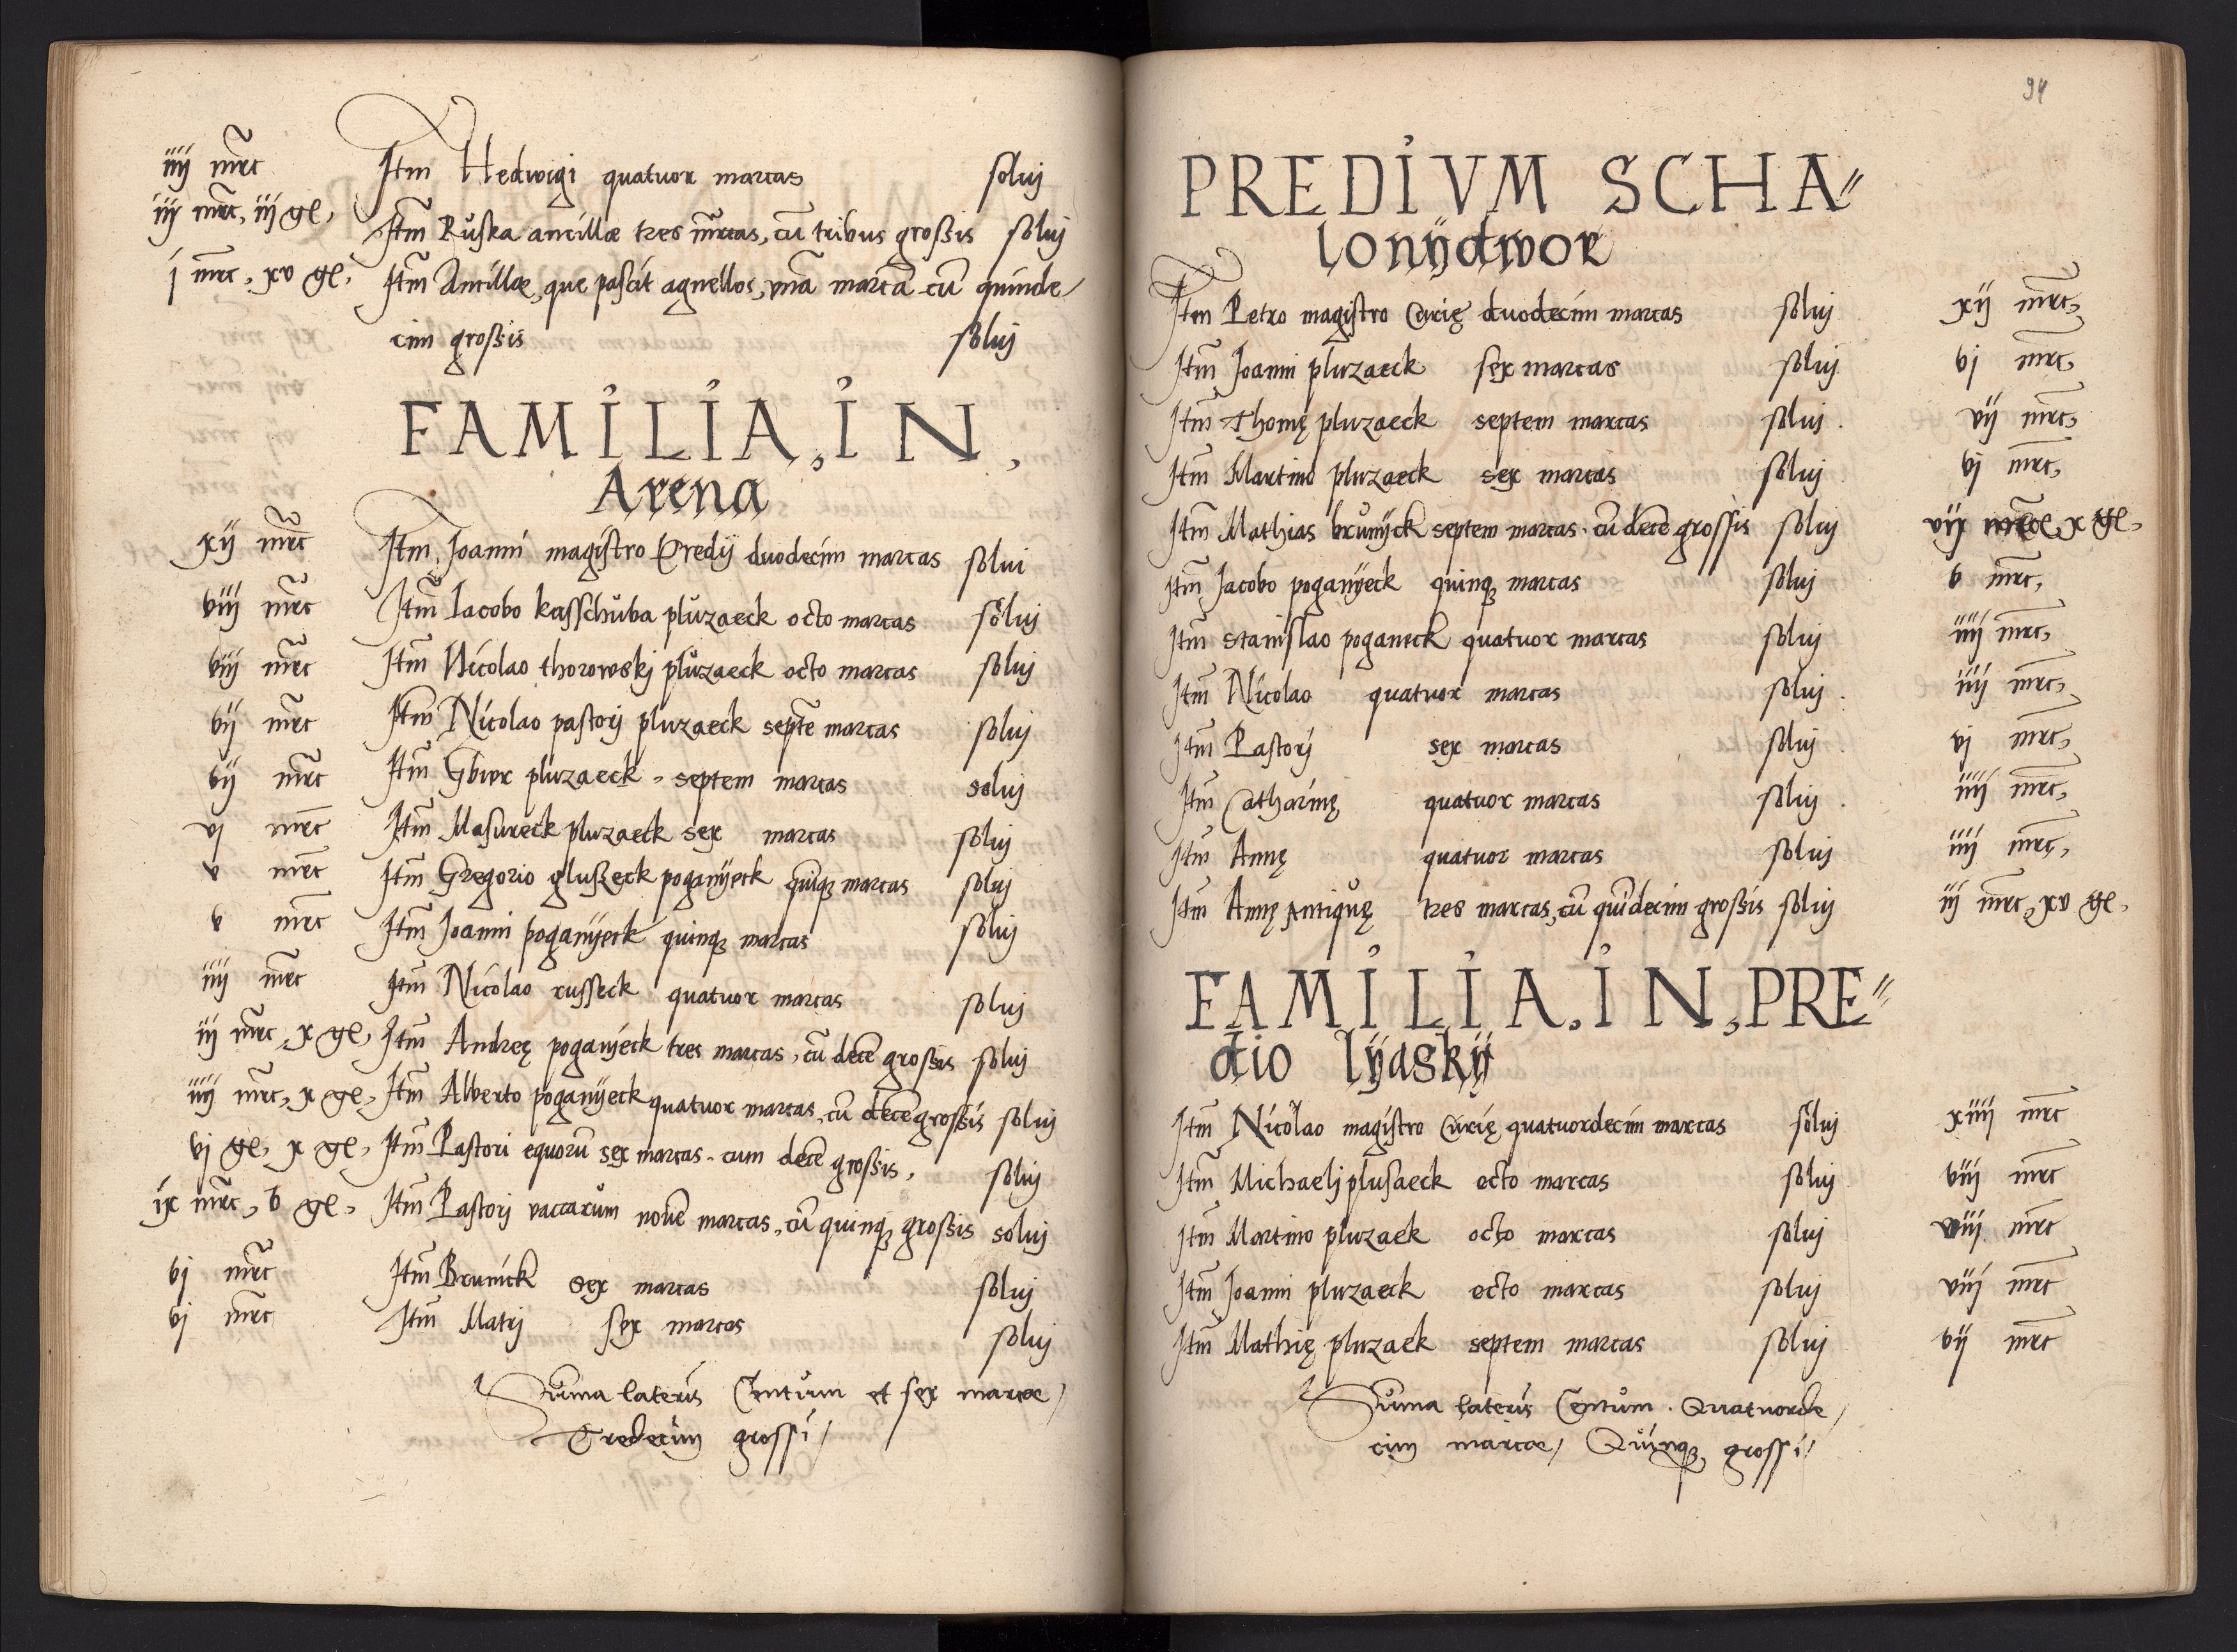 iiij mrc Itm Hedwigi quatuor marcas soluj
iij mrc, iij gl, Itm Ruska ancillæ tres mrcas, cū tribus grossis soluj
j mrc, xv gl, Itm Ancillæ, que pascit agnellos, vnā marcā cū quinde/
cim grossis soluj
FAMILIA, IN,
Arena
xij mrc Itm Joanni magistro Predij duodecim marcas solui
viij mrc Itm Iacobo kasschuba pluzaeck octo marcas soluj
viij mrc Itm Nicolao thorowskj pluzaeck octo marcas soluj
vij mrc Itm Nicolao pastorj pluzaeck septē marcas soluj
vij mrc Itm Gbwr pluzaeck septem marcas soluj
vj mrc Itm Masureck pluzaeck sex marcas soluj
v mrc Itm Gregorio glusseck poganÿeck quinqz marcas soluj
v mrc Itm Joanni poganÿeck quinqz marcas soluj
iiij mrc Itm Nicolao russeck quatuor marcas soluj
iij mrc, x gl, Itm Andreę poganÿeck tres marcas, cū decē grossis soluj
iiij mrc, x gl, Itm Alberto poganÿeck quatuor marcas, cū decē grossis soluj
vj gl, x gl, Itm Pastori equorū sex marcas cum decē grossis, soluj
ix mrc, v gl, Itm Pastorj vaccarum novē marcas, cū quinqz grossis soluj
vj mrc Itm Brunick sex marcas soluj
vj mrc Itm Matrj sex marcas soluj
Sūma lateris Centum et sex marcæ/
Tredecim grossi/
94
PREDIVM SCHA"
lonÿdwor
Itm Petro magistro Curię duodecim marcas soluj xij mrc,
Itm Joanni pluzaeck sex marcas soluj vj mrc,
Itm Thomę pluzaeck septem marcas soluj vij mrc,
Itm Martino pluzaeck sex marcas soluj vj mrc,
Itm Mathias brunÿck septem marcas cū decē grossis soluj vij mrc, x gl,
Itm Jacobo poganÿeck quinqz marcas soluj v mrc,
Itm Stanislao poganeck quatuor marcas soluj iiij mrc,
Itm Nicolao quatuor marcas soluj iiij mrc,
Itm Pastorj sex marcas soluj vj mrc,
Itm Catharinę quatuor marcas soluj iiij mrc,
Itm Annę quatuor marcas soluj iiij mrc,
Itm Annę Antiquę tres marcas, cū quīdecim grossis soluj iij mrc, xv gl,
FAMILIA, IN, PRE"
dio lÿaskÿ
Itm Nicolao magistro Curię quatuordecim marcas soluj xiiij mrc
Itm Michaelj plusaeck octo marcas soluj viij mrc
Itm Martino pluzaek octo marcas soluj viij mrc
Itm Joanni pluzaeck octo marcas soluj viij mrc
Itm Mathię pluzaek septem marcas soluj vij mrc
Sūma lateris Centum Quatuorde/
cim marcæ/ Quinqz grossi/